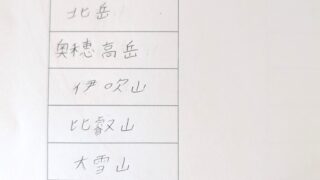 北岳
奥穂高岳
伊吹山
比叡山
大雪山